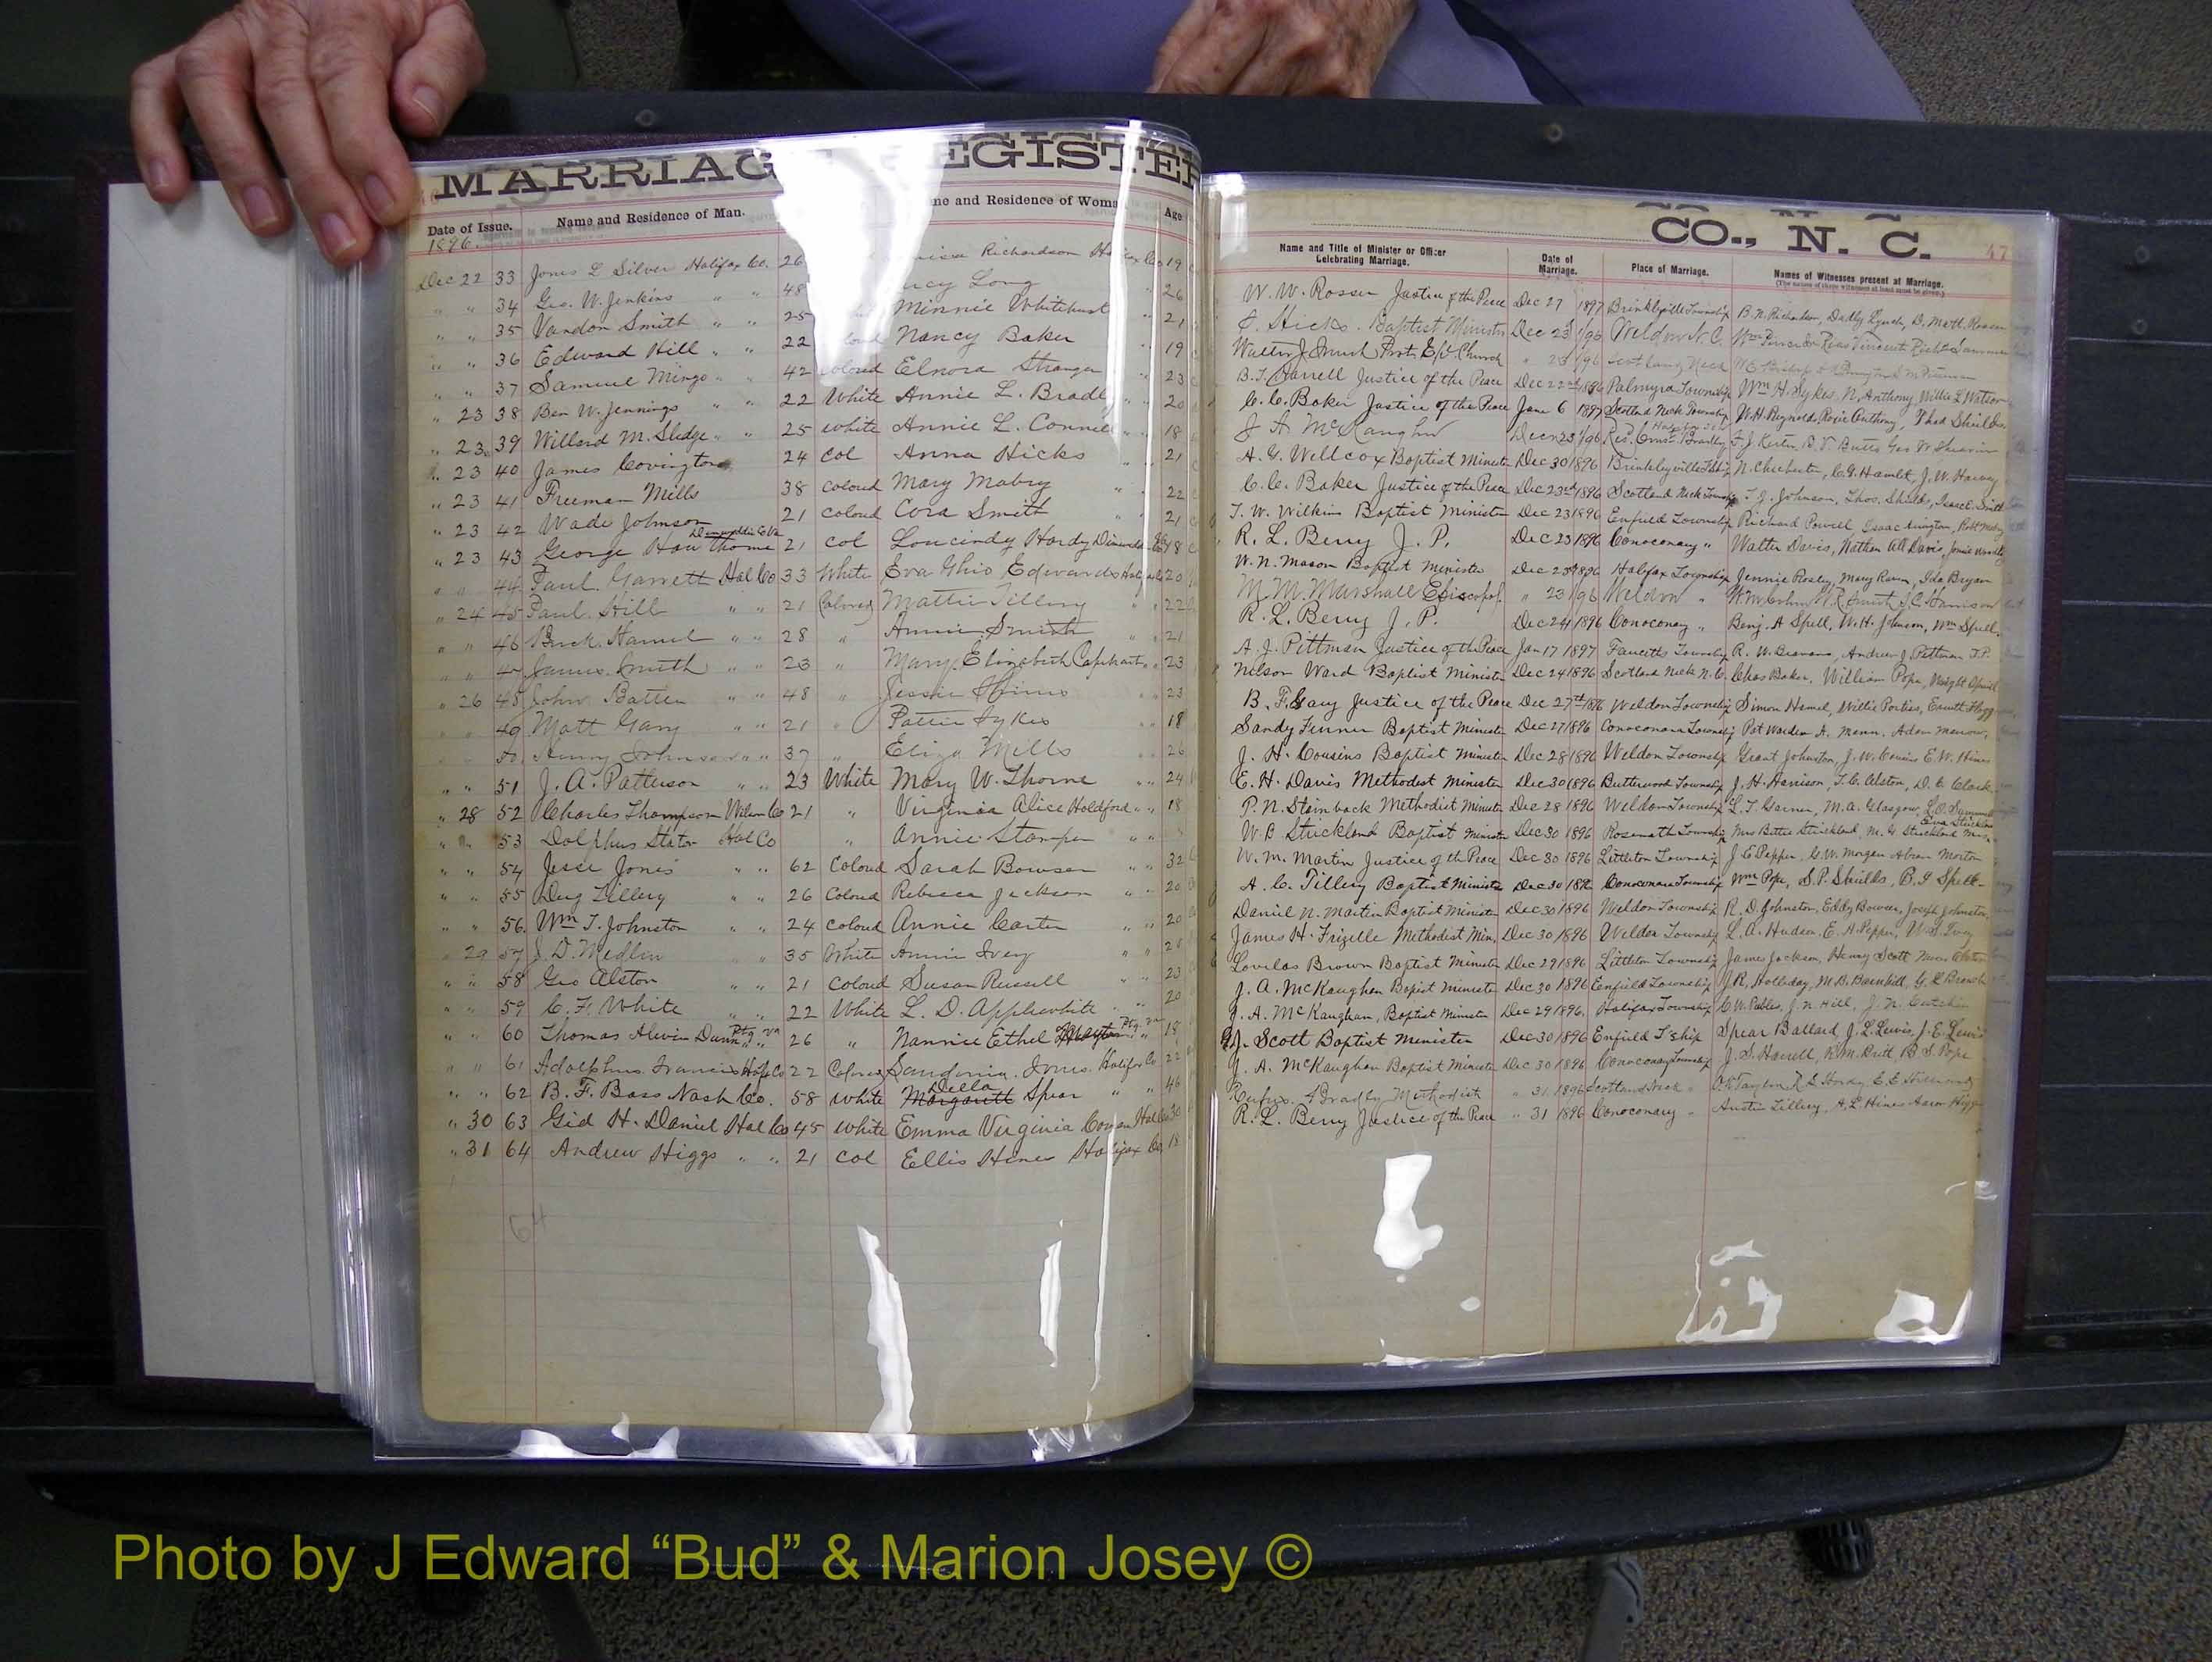 MARRIAG EGISTER
Date of Issue. Name and Residence of Man. me and Residence of Woma Age
1896.
Dec 22 33 Jones L Silver Halifax Co. 26 Richardson Halifax Co 19
" " 34 Geo. W. Jenkins " " 48 Long " 26
" " 35 Vandon Smith " " 25 Minnie Whitehurst " 21
" " 36 Edward Hill " " 22 Nancy Baker " 19
" " 37 Samuel Mingo " " 42 Colored Elnora Stranger " 23
" 23 38 Ben W. Jennings " " 22 White Annie L. Bradly " 20
" 23 39 Willard M. Sledge " " 25 White Annie L. Connell " 18
" 23 40 James Covington 24 Col Anna Hicks " 21
" 23 41 Freeman Mills 38 Colored Mary Mabry " 22
" 23 42 Wade Johnson 21 Colored Cora Smith " 21
" 23 43 George Hawthorne Dinwiddie Co Va 21 Col Loucindy Hardy 18
" " 44 Paul Garrett Hal Co 33 White Eva Ghio Edwards 20
" 24 45 Paul Hill " " 21 Colored Mattie Tillery " 22
" " 46 Buck Hamel " " 28 " Annie Smith " 21
" " 47 James Smith " " 23 " Mary Elizabeth Capehart " 23
" 26 48 John Batten " " 48 " Jessie Hines " 23
" " 49 Matt Gary " " 21 " Pattie Sykes " 18
" " 50 Henry Johnson " " 37 " Eliza Mills " 26
" " 51 J. A. Patterson " " 23 White Mary W. Thorne " 24
" 28 52 Charles Thompson Wilson Co 21 " Virginia Alice Holdford " 18
" " 53 Dolphus Staton Hal Co " Annie Stamper " "
" " 54 Jesse Jones " " 62 Colored Sarah Bowser " 32
" " 55 Dug Tillery " " 26 Colored Rebecca Jackson " 20
" " 56 Wm T. Johnston " " 24 Colored Annie Carter " 20
" 29 57 J. D. Medlin " " 35 White Annie Ivey " "
" " 58 Geo Alston " " 21 Colored Susan Russell " 23
" " 59 C. F. White " " 22 White L. D. Applewhite " 20
" " 60 Thomas Alvin Dunn Ptg. Va 26 " Nannie Ethel Ptg. Va 18
" " 61 Adolphus Francis Half Co 22 Colored Jones Halifax Co 22
" " 62 B. F. Bass Nash Co. 58 White Margarett Della Spear " " 46
" 30 63 Gid H. Daniel Hal Co 45 White Emma Virginia Hal Co 30
" 31 64 Andrew Higgs " " 21 Col Ellis Hines Halifax Co 18
64
CO., N. C.
47
Name and Title of Minister or Officer Celebrating Marriage. Date of Marriage. Place of Marriage. Names of Witnesses present at Marriage.
(The names of three witnesses at least must be given.)
W. W. Rosser Justice of the Peace Dec 27 1897 Brinkleyville Township B. N. Richardson, Dudly Lynch, D. Mott Rosser
Hicks Baptist Minister Dec 23 1/96 Weldon N. C.
Walter J Smith Prot. Ep'l Church " 23 1/96 Scotland Neck
B. T. Darrell Justice of the Peace Dec 22nd 1896 Palmyra Township Wm H. Sykes, N. Anthony, Willie L Watson
C. C. Baker Justice of the Peace Jan 6 1897 Scotland Neck Township W. H. Reynolds, Rosie Anthony, Thad Shields
J A McKaughn Dec 23 1/96 Res. Bradley
A. G. Willcox Baptist Minister Dec 30 1896 Brinkleyville T'Ship N. Chichester, C. G. Hamlet, J. W. Harvey
C. C. Baker Justice of the Peace Dec 23rd 1896 Scotland Neck Township T. J. Johnson, Thos. Shields, Isaac Smith
T. W. Wilkins Baptist Minister Dec 23 1896 Enfield Township Richard Powell, Isaac Arington,
R. L. Berry J. P. Dec 23 1896 Conoconary " Walter Davis, Nathan Davis,
W. N. Mason Baptist Minister Dec 23 1896 Halifax Township Jennie Pooley, Mary Raven, Ida Bryan
M. M. Marshall Episcopal " 23 1/96 Weldon "
R. L. Berry J. P. Dec 24 1896 Conoconary " Benj. A Spell, W. H. Johnson, Wm Spell
A. J. Pittman Justice of the Peace Jan 17 1897 Faucetts Township R. W. Beavans, Andrew J. Pittman J. P.
Nelson Ward Baptist Minister Dec 24 1896 Scotland Neck N. C. Chas Baker, William Pope,
B. F. Gary Justice of the Peace Dec 27th 1896 Weldon Township Simon Hamel, Willie Porties,
Sandy Finner Baptist Minister Dec 27 1896 Conoconara Township Pat Warden A. Mann, Adam Manow,
J. H. Cousins Baptist Minister Dec 28 1896 Weldon Township Grant Johnston, J. W. Cousins E. W. Hines
E. H. Davis Methodist Minister Dec 30 1896 Butterwood Township J. H. Harrison, T. C. Alston, D. C. Clark
P. N. Stainback Methodist Minister Dec 28 1896 Weldon Township L. T. Garner, M. A. Glasgow,
W. B Strickland Baptist Minister Dec 30 1896 Roseneath Township Mrs Bettie Strickland, M. W Strickland Eva Strickland
W. M. Martin Justice of the Peace Dec 30 1896 Littleton Township J. E Pepper, G. W. Morgan Abram Morton
A. C. Tillery Baptist Minister Dec 30 189 Conoconara Township Wm Pope, S. P. Shields, B. F Spell
Daniel N. Martin Baptist Minister Dec 30 1896 Weldon Township R. D. Johnston, Eddy Bowser, Joseph Johnston
James H. Frizelle Methodist Min. Dec 30 1896 Weldon Township L. A. Hudson, E. A. Pepper, W. S. Ivey
Lovelas Brown Baptist Minister Dec 29 1896 Littleton Township James Jackson, Henry Scott
J. A. McKaughan Baptist Minister Dec 30 1896 Enfield Township J. R. Holliday, M. B. Barnhill, G. L Branch
J. A. McKaughan, Baptist Minister Dec 29 1896. Halifax Township C. W. Pables, J. N. Hill, J. N. Cutchin
J. Scott Baptist Minister Dec 30 1896 Enfield T'Ship Spear Ballard, J. L. Lewis, J. E. Lewis
J. A. McKaughan Baptist Minister Dec 30 1896 Conoconary Township J. S. Harrell, R. M. Britt B. S. Pope
Rufus A Bradly Methodist " 31 1896 Scotland Neck "
R. L. Berry Justice of the Peace " 31 1896 Conoconary " Austin Tillery, A. L Hines Aaron Higgs
Photo by J Edward “Bud” & Marion Josey ©